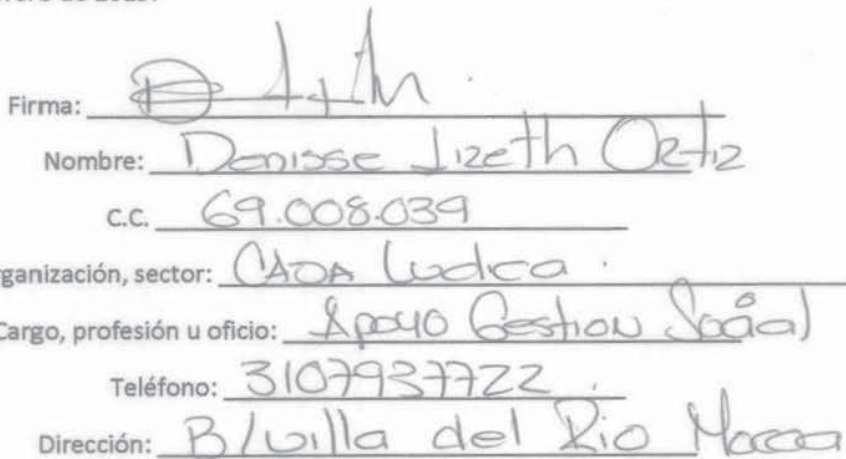 Firma:
Nombre: Denisse Lizeth Ortiz
C.C. 69.008.039
rganización, sector: Ludica
Cargo, profesión u oficio: Apoyo Gestion Social
Teléfono: 3107937722
Dirección: B/villa del Rio Mocoa